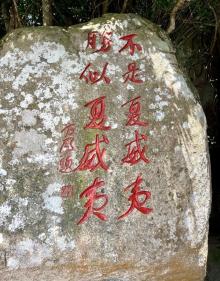 不是夏威夷
胜似夏威夷